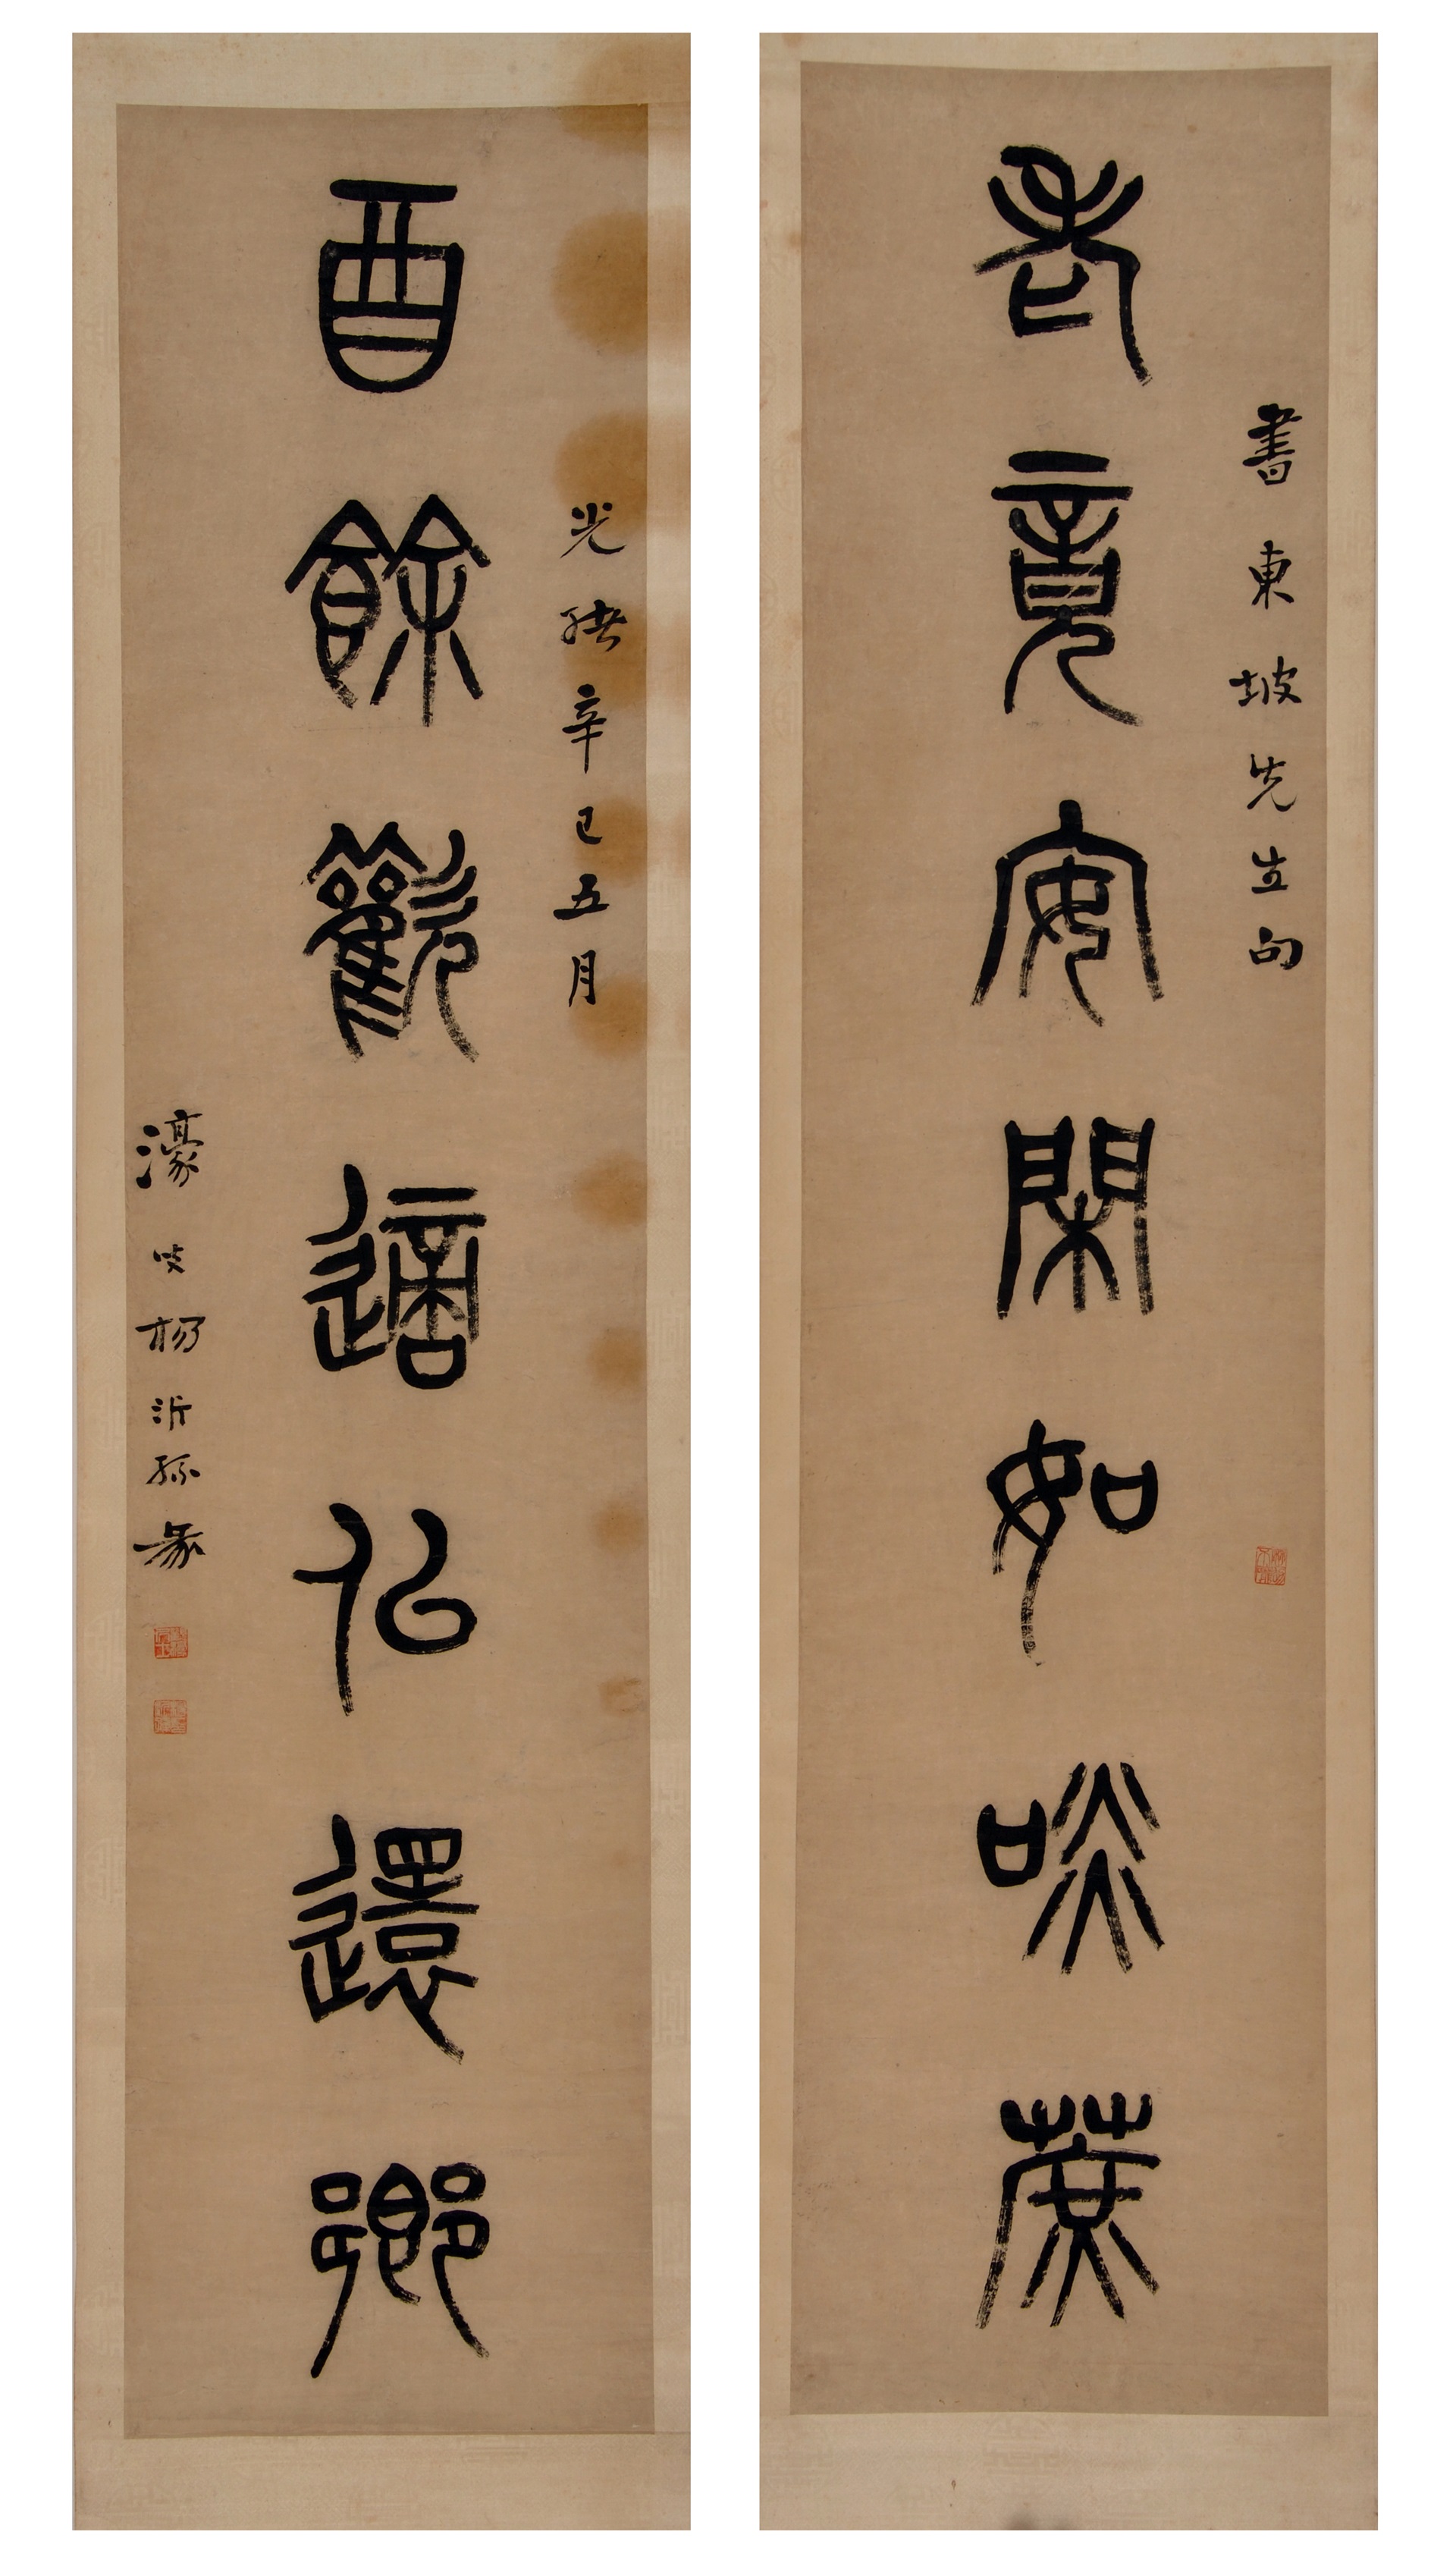 書東坡先生句
老竟安閑如啖蔗
光緒辛巳五月
酉餘歡適似還鄉
濠叟楊沂孫篆